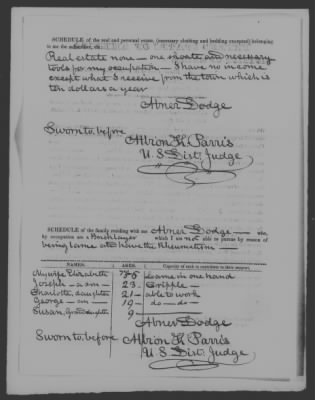 SCHEDULE of the real and personal estate, (necessary clothing and bedding excepted) belonging
to me the subscriber, viz:
Real estate none — one shoate and necessary
tools for my occupation — I have no income
except what I receive from the town which is
ten dollars a year
Abner Dodge
Sworn to, before
Albion K. Parris
U. S. Dist. Judge
SCHEDULE of the family residing with me Abner Dodge — who,
by occupation am a Bricklayer which I am not able to pursue by reason of
being lame and have the Rheumatism —
NAMES. AGES. Capacity of each to contribute to their support.
My wife Elizabeth 75 Lame in one hand
Joseph — a son — 23 Cripple —
Charlotte, daughter 21 — able to work
George — son — 19 — do — do —
Susan, Granddaughter 9
Abner Dodge
Sworn to, before Albion K. Parris
U. S. Dist. Judge